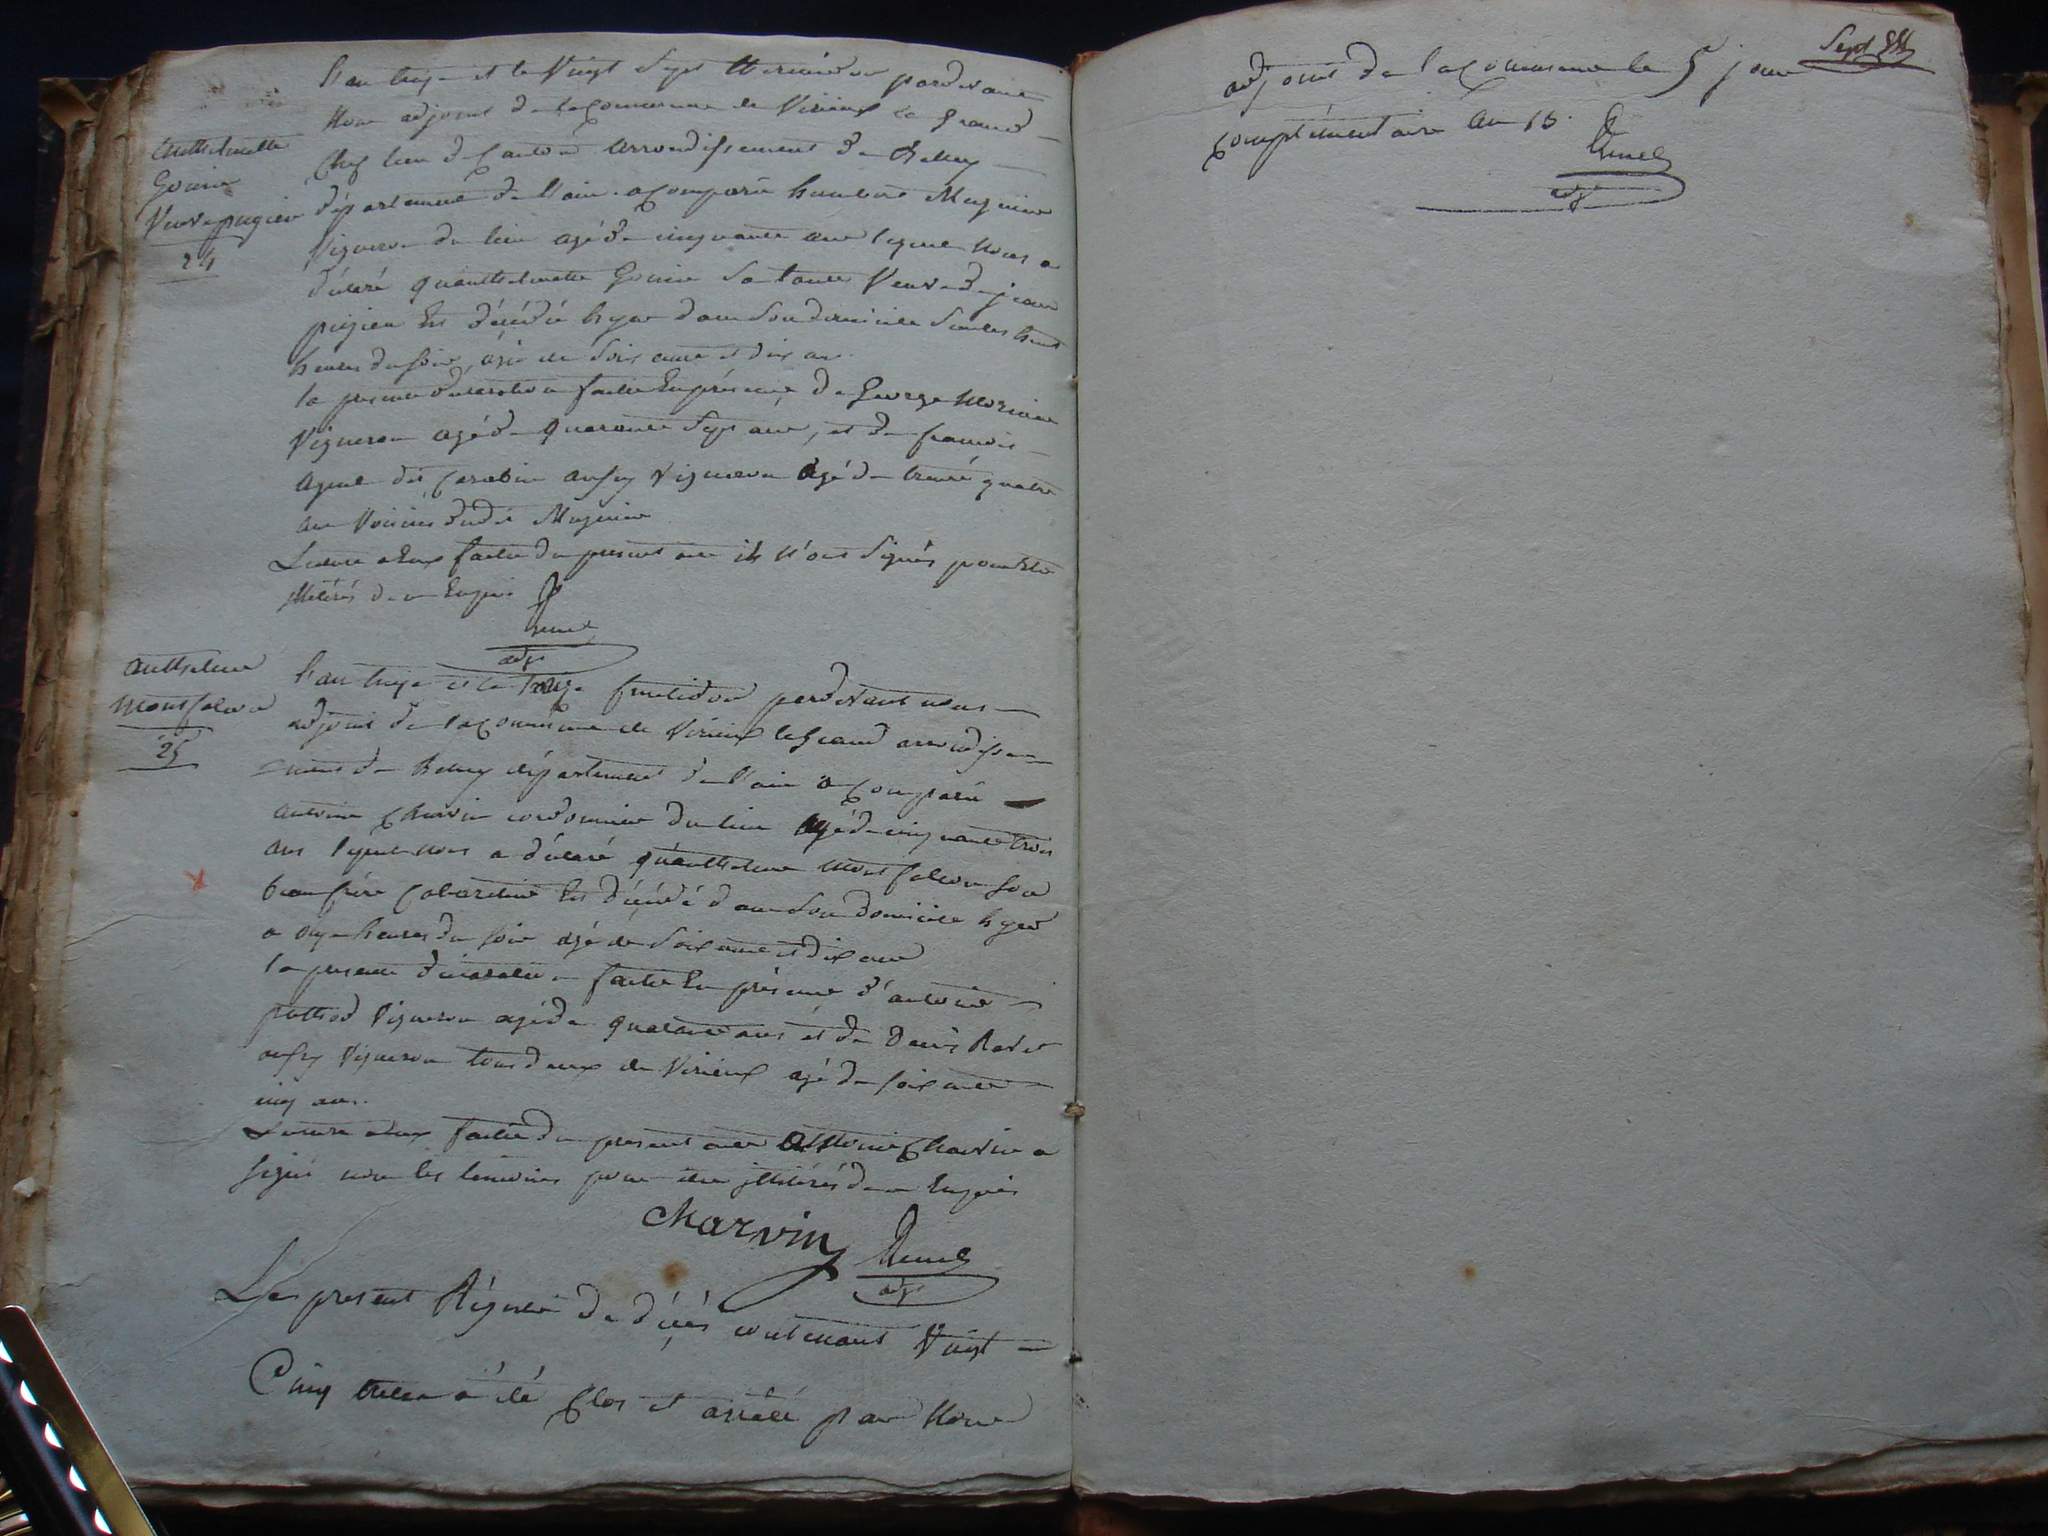 l'an treze et le Vingt Sept thermidor pardevant
Nous adjoint de la Commune de Virieux le grand
Chef lieu de Canton arrondissement de Belley
département de l'ain a comparu humbert Mugnier
Vigneron du lieu agé de cinquante ans lequel nous a
déclaré qu'anthelmette Gouin sa tante Veuve de jean
pugieu Est décédé hyer dans son domicile Sur les huit
heures du soir, agé de soixante et dix ans
la presente declaration faite En présence de George
Vigneron agé de quarante Sept ans, et de francois
dit Carabin aussy Vigneron agé de trente quatre
ans Voisins dudit Mugnier
Lecture a Eux faite du present acte ils n'ont Signés pour Etre
illitérés de ce Enquis
adjt
anthelmette
Gouin
Veuve pugieu
24
l'an treze et le treize fructidor pardevant nous
adjoint de la Commune de Virieux le grand arrondisse
ment de Belley département de l'ain a Comparu
antoine Charvin cordonnier du lieu agé de cinquante trois
ans lequel nous a déclaré qu'anthelme montfalcon son
beau frère Est décédé dans son domicile hyer
a onze heures du soir agé de soixante et dix ans
la presente déclaration faite En présence d'antoine
Vigneron agé de quarante ans et de Denis
aussy Vigneron tous deux de Virieux agé de soixante
cinq ans.
Lecture a Eux faite du present acte antoine Charvin a
signé non les temoins pour etre illitérés de ce Enquis
charvin
adjt
anthelme
montfalcon
25
Le present Régistre de décés contenant Vingt
Cinq actes a été Clos et arrété par Nous
Sept
adjoint de la Commune le 5 jour
complémentaire an 13.
adjt